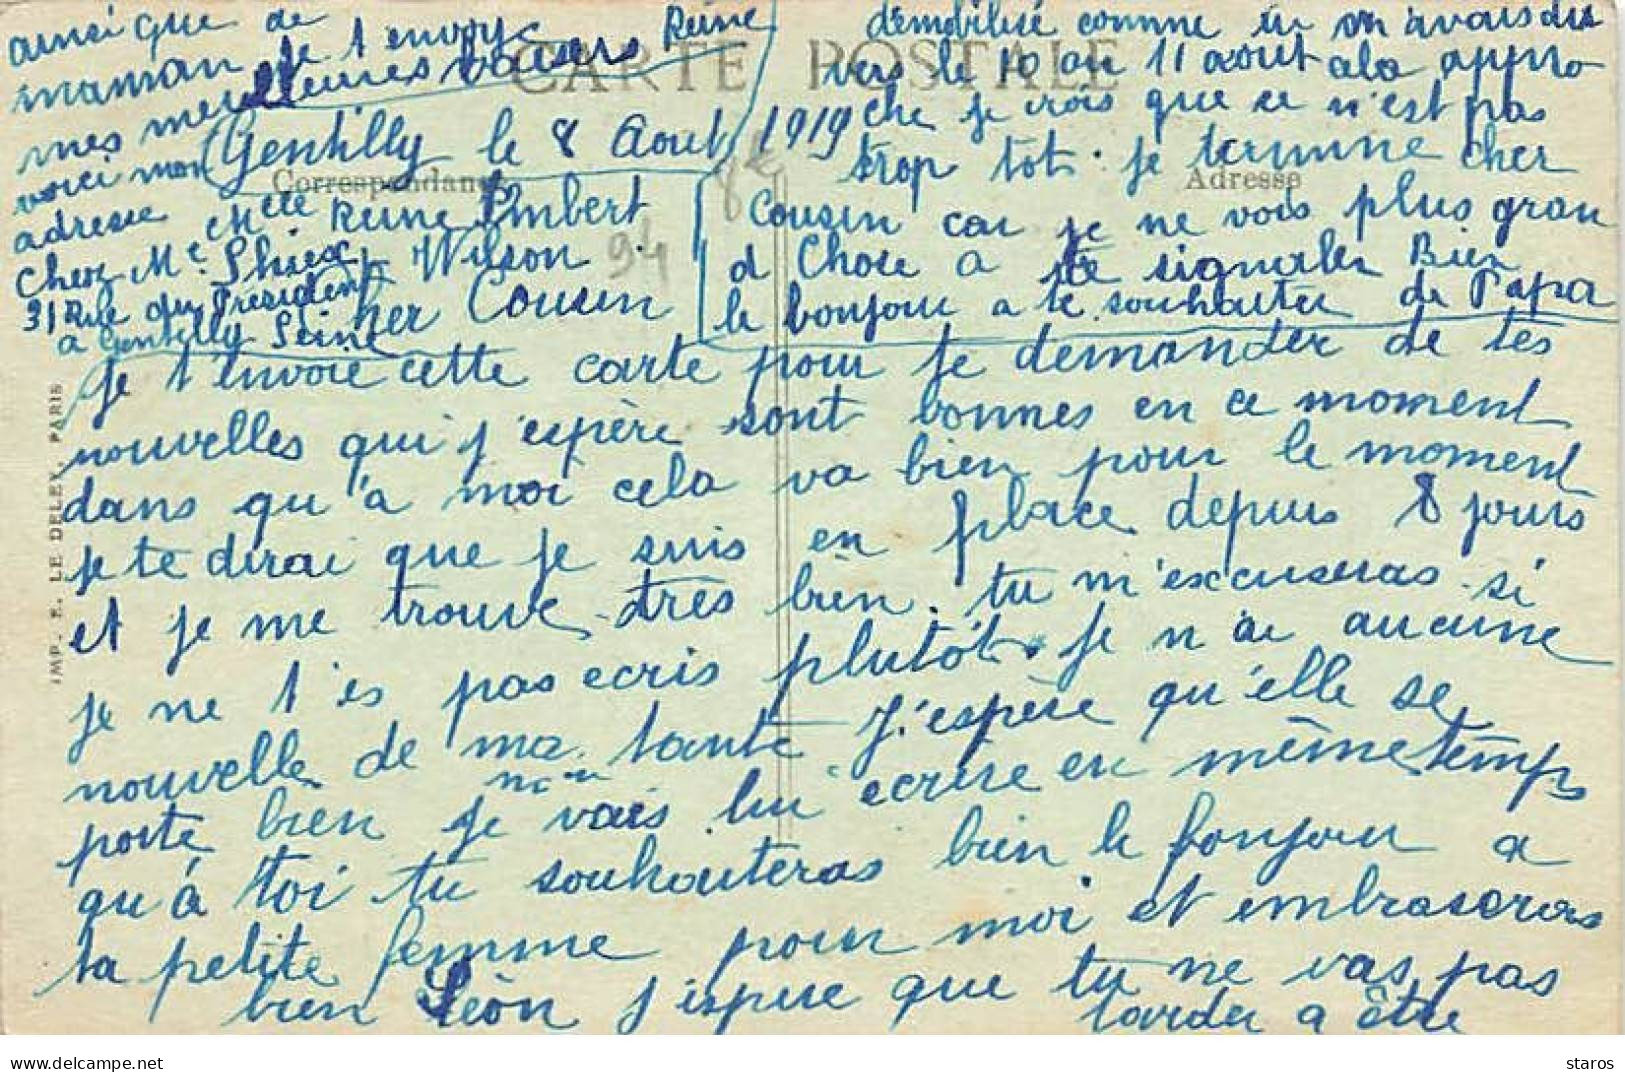 CARTE POSTALE
Correspondance
Adresse
Gentilly le 8 Aout 1919
Cher Cousin
je t'envoie cette carte pour te demander de tes
nouvelles qui j'espère sont bonnes en ce moment
dans qu'à moi cela va bien pour le moment
je te dirai que je suis en place depuis 8 jours
et je me trouve très bien. tu m'excuseras si
je ne t'es pas ecris plutôt. je n'ai aucune
nouvelle de ma tante J'espère qu'elle se
porte bien je vais lui ecrire en même temps
qu'à toi tu souhaiteras bien le bonjour a
ta petite femme pour moi et embrasseras
bien Léon j'espere que tu ne vas pas
tarder a être
démobilisé comme tu m'avais dis
vers le 10 au 11 aout ala appro
che je crois que ce n'est pas
trop tot. je termine cher
Cousin car je ne vois plus gran
d Chose a te signaler Bien
le bonjour a te souhaiter de Papa
ainsi que de
maman je t'envoye
mes meilleures baisers Reine
voici mon
adresse
Mlle Reine Imbert
Chez Me.
31 Rue du President Wilson
a Gentilly Seine
94
IMP. E. LE DELEY, PARIS
delcampe.net
staros